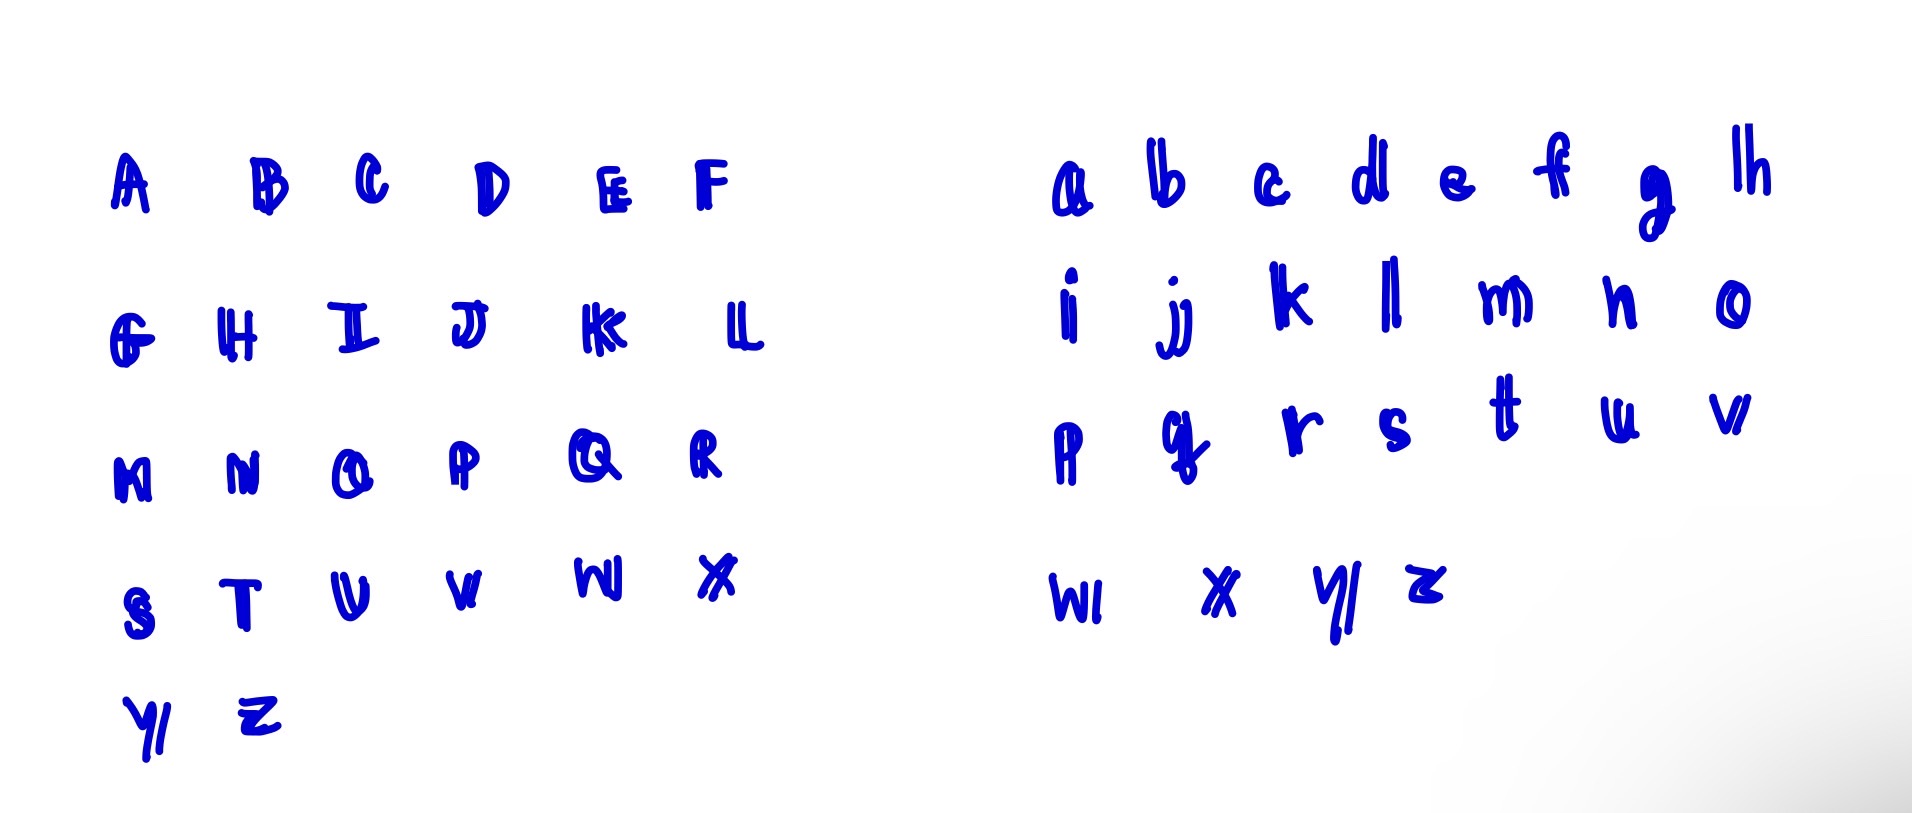 A B C D E F
G H I J K L
M N O P Q R
S T U V W X
Y Z
a b c d e f g h
i j k l m n o
p q r s t u v
w x y z